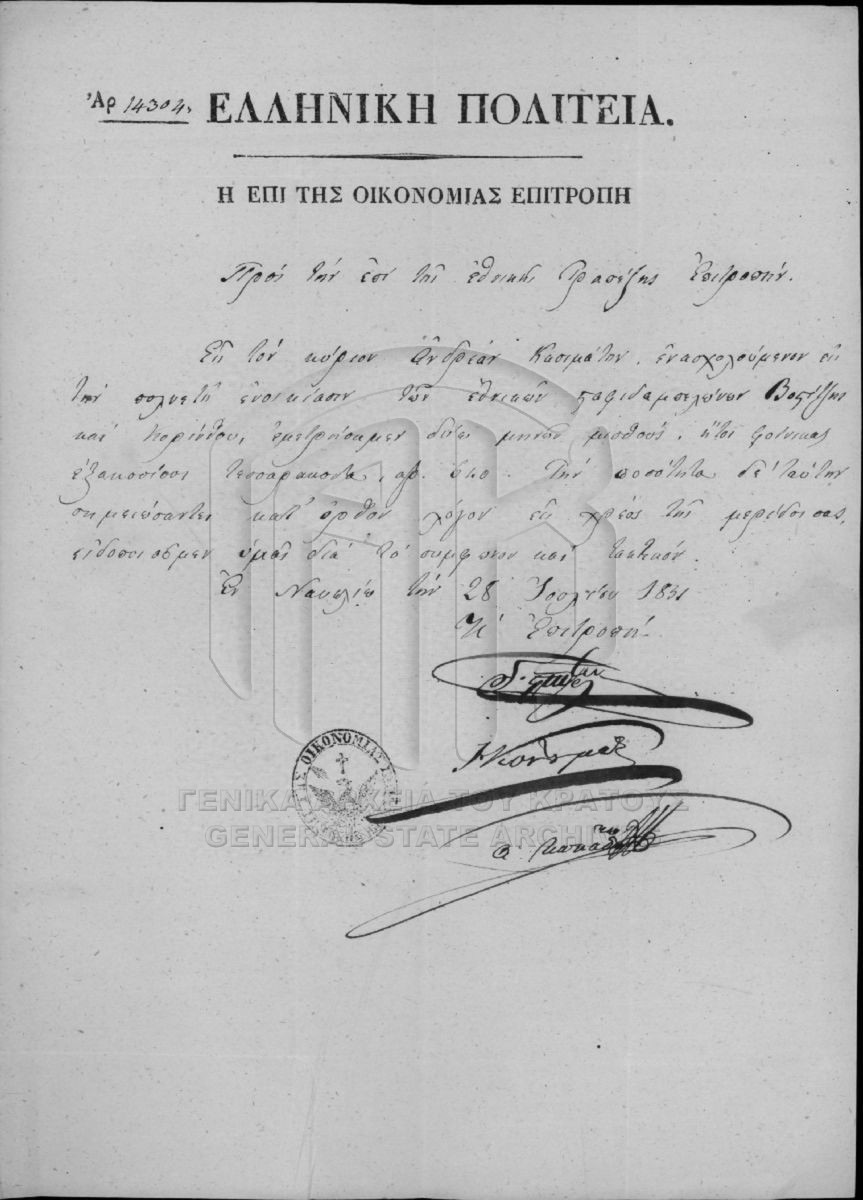 Ἀρ 14304.
ΕΛΛΗΝΙΚΗ ΠΟΛΙΤΕΙΑ.
Η ΕΠΙ ΤΗΣ ΟΙΚΟΝΟΜΙΑΣ ΕΠΙΤΡΟΠΗ
Πρὸς τὴν ἐπὶ τῆς ἐθνικῆς Τραπέζης Ἐπιτροπήν.
Εἰς τὸν κύριον Ἀνδρέαν Κασιμάτην, ἐνασχολούμενον εἰς
τὴν πολυετῆ ἐνοικίασιν τῶν ἐθνικῶν σταφιδαμπελώνων Βοστίτζης
καὶ Κορίνθου, ἐμετρήσαμεν δύω μηνῶν μισθούς, ἤτοι φοίνικας
ἑξακοσίους τεσσαράκοντα, ἀρ. 640. Τὴν ποσότητα δὲ ταύτην
σημειώσαντες κατ' ὀρθὸν λόγον εἰς χρέος τῆς μερίδος σας,
εἰδοποιοῦμεν ὑμᾶς διὰ τὸ σύμφωνον καὶ τακτικόν.
Ἐν Ναυπλίῳ τὴν 28 Ἰουλίου 1831
Ἡ Ἐπιτροπή
ΟΙΚΟΝΟΜΙΑΣ
ΓΕΝΙΚΑ ΑΡΧΕΙΑ ΤΟΥ ΚΡΑΤΟΥΣ
GENERAL STATE ARCHIVES